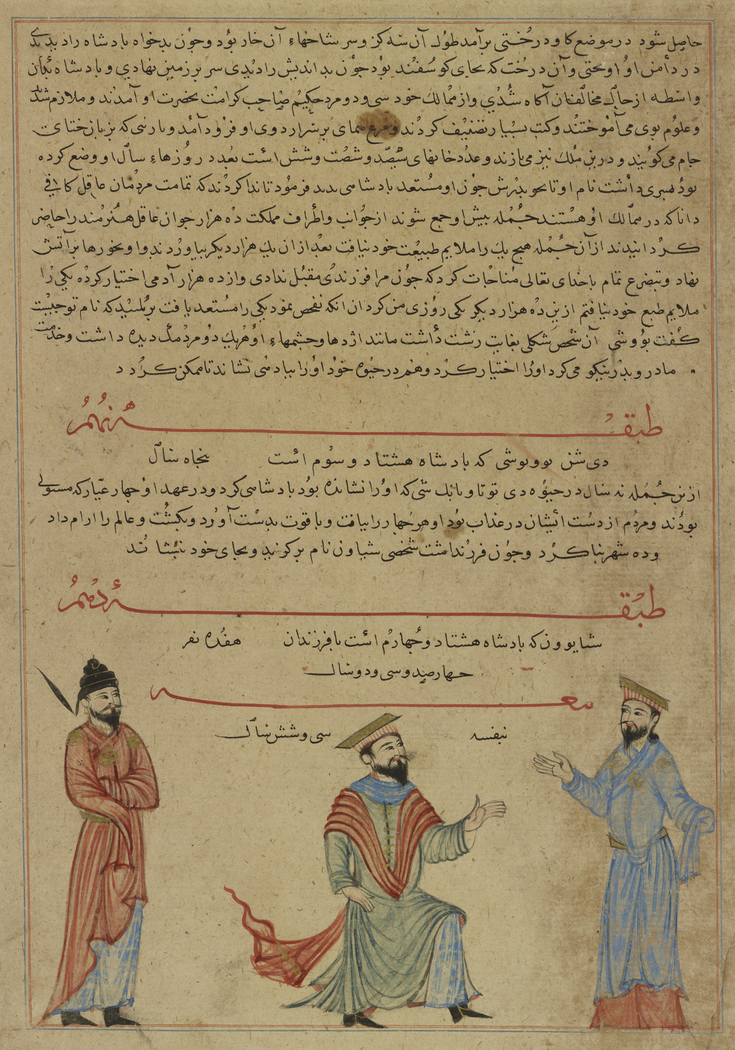 حاصل شود در موضع کاو درختی برآمد طول آن سه کز و سر شاخهاء آن خار بود و جون بدخواه بادشاه را دیدی
در دامن او اویختی و آن درخت که بجای کوسفند بود جون بد اندیش را دیدی سر بر زمین نهادی و بادشاه بدان
واسطه از حال مخالفان آکاه شدی و از ممالک خود سی و دو مرد حکیم صاحب کرامت بحضرت او آمدند و ملازم شدند
و علوم بوی می آموختند و کتب بسیار تصنیف کردند و مرغ همای بر سرار دوی او فرود آمد و بارسی که بزبان ختای
جام می کویند و درین ملک نیز می بازند و عدد خانهای سیصد و شصت و شش است بعدد روزهاء سال او وضع کرده
بود بسری داشت نام او تایجو بدرش جون او مستعد بادشاسی ندید فرمود تا ندا کردند که تمامت مردمان عاقل کافی
دانا که در ممالک او هستند جمله بیش او جمع شوند از جوانب و اطراف مملکت ده هزار جوان عاقل هنرمند را حاضر
کردانیدند از آن جمله هیج یک را ملایم طبیعت خود نیافت بعد از ان یک هزار دیکر بیاوردند و او بخورها بر آتش
نهاد و بتضرع تمام با خدای تعالی مناجات کرد که جون مرا فرزندی مقبل ندادی و از ده هزار آدمی اختیار کرده یکی را
ملایم طبع خود نیافتم ازین ده هزار دیکر یکی روزی من کردان انکه تفحص نمود یکی را مستعد یافت برسید که نام تو جیست
کفت بووشی آن شخص شکلی بغایت زشت داشت مانند اژدها و جشمهاء او هر یک دو مردمک دیده داشت و خدمت
مادر و بدر نیکو می کرد او را اختیار کرد و هم در حیوة خود او را ببادشاسی نشاند تا ممکن کردد
طبقه نهم
دی شن بووبوشی که بادشاه هشتاد و سوم است بنجاه سال
ازین جمله نه سال در حیوة دی تو تاو بانک شی که او را نشانده بود بادشاسی کرد و در عهد او جهار عیار که مستولی
بودند و مردم از دست ایشان در عذاب بود او هر جهار را بیافت و با قوت بدست آورد و بکشت و عالم را ارام داد
و ده شهر بنا کرد و جون فرزند نداشت شخصی شیاون نام برکزید و بجای خود بنشاند
طبقه دهم
شیایوون که بادشاه هشتاد و جهارم است با فرزندان هفده نفر
جهارصد و سی و دو سال
بنفسه سی و شش سال